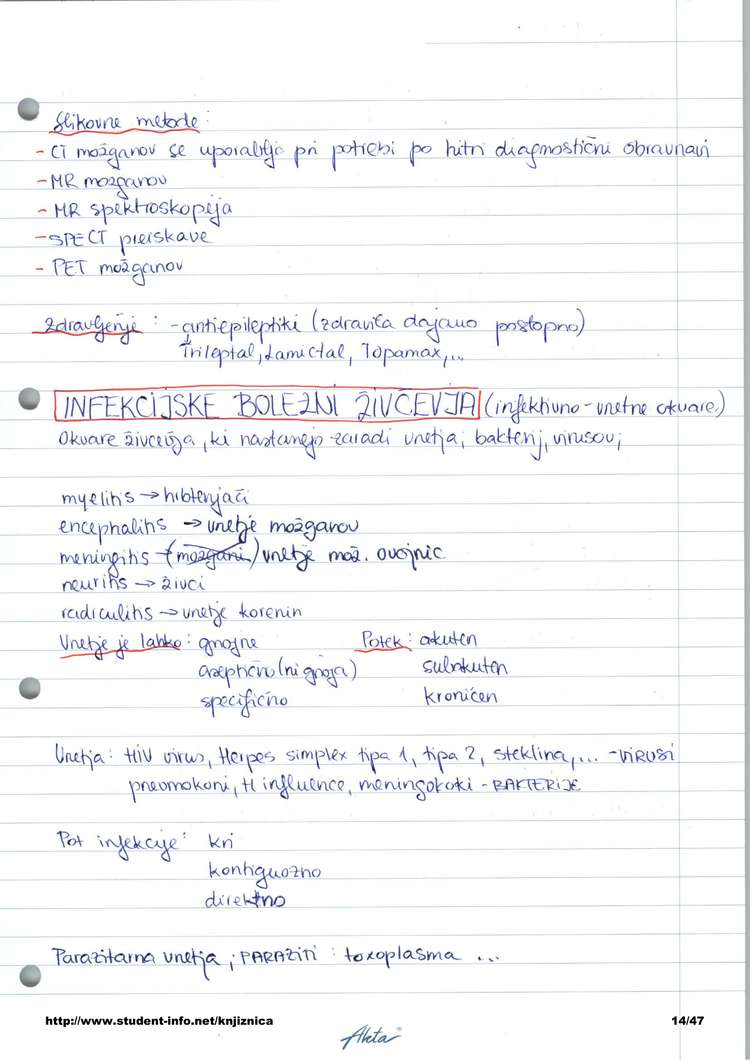 Slikovne metode:
- CT možganov se uporablja pri potrebi po hitri diagnostični obravnavi
- MR možganov
- MR spektroskopija
- SPECT preiskave
- PET možganov
Zdravljenje: - antiepileptiki (zdravila dajamo postopno)
Trileptal, Lamictal, Topamax,...
INFEKCIJSKE BOLEZNI ŽIVČEVJA (infektivno-vnetne okvare)
Okvare živčevja, ki nastanejo zaradi vnetja; bakterij, virusov;
myelitis → hrbtenjači
encephalitis → vnetje možganov
meningitis (možgani) vnetje mož. ovojnic
neuritis → živci
radiculitis → vnetje korenin
Vnetje je lahko: gnojne Potek: akuten
aseptično (ni gnoja) subakuten
specifično kroničen
Vnetja: HIV virus, Herpes simplex tipa 1, tipa 2, steklina,... - VIRUSI
pneumokoki, H influence, meningokoki - BAKTERIJE
Pot infekcije: kri
kontiguozno
direktno
Parazitarna vnetja; PARAZITI: toxoplasma ...
http://www.student-info.net/knjiznica 14/47
Akta